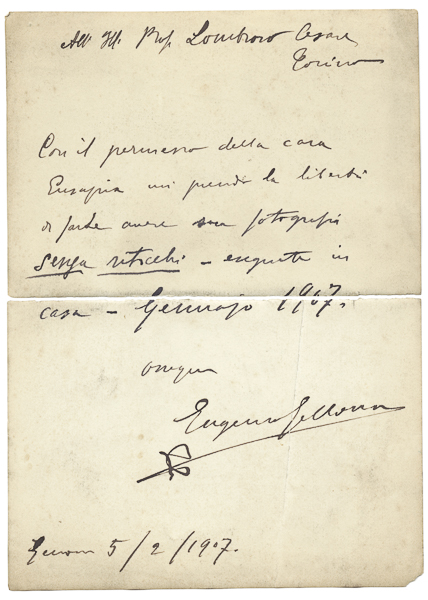 All' Ill. Prof. Lombroso Cesare
Torino
Con il permesso della cara
Eusapia mi prendo la libertà
di farle avere sua fotografia
senza ritocchi - eseguita in
casa - Gennajo 1907.
Eugenio Gellona
Genova 5/2/1907.